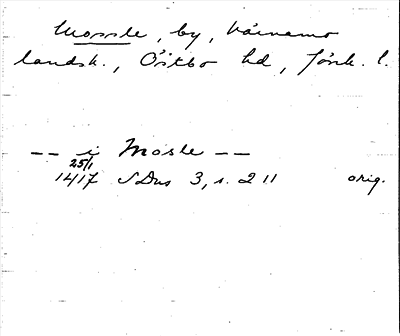 Mossle, by, Värnamo
landsk., Östbo hd, Jönk. l.
-- i Mosle --
25/1
1417 SDns 3, s. 211 orig.